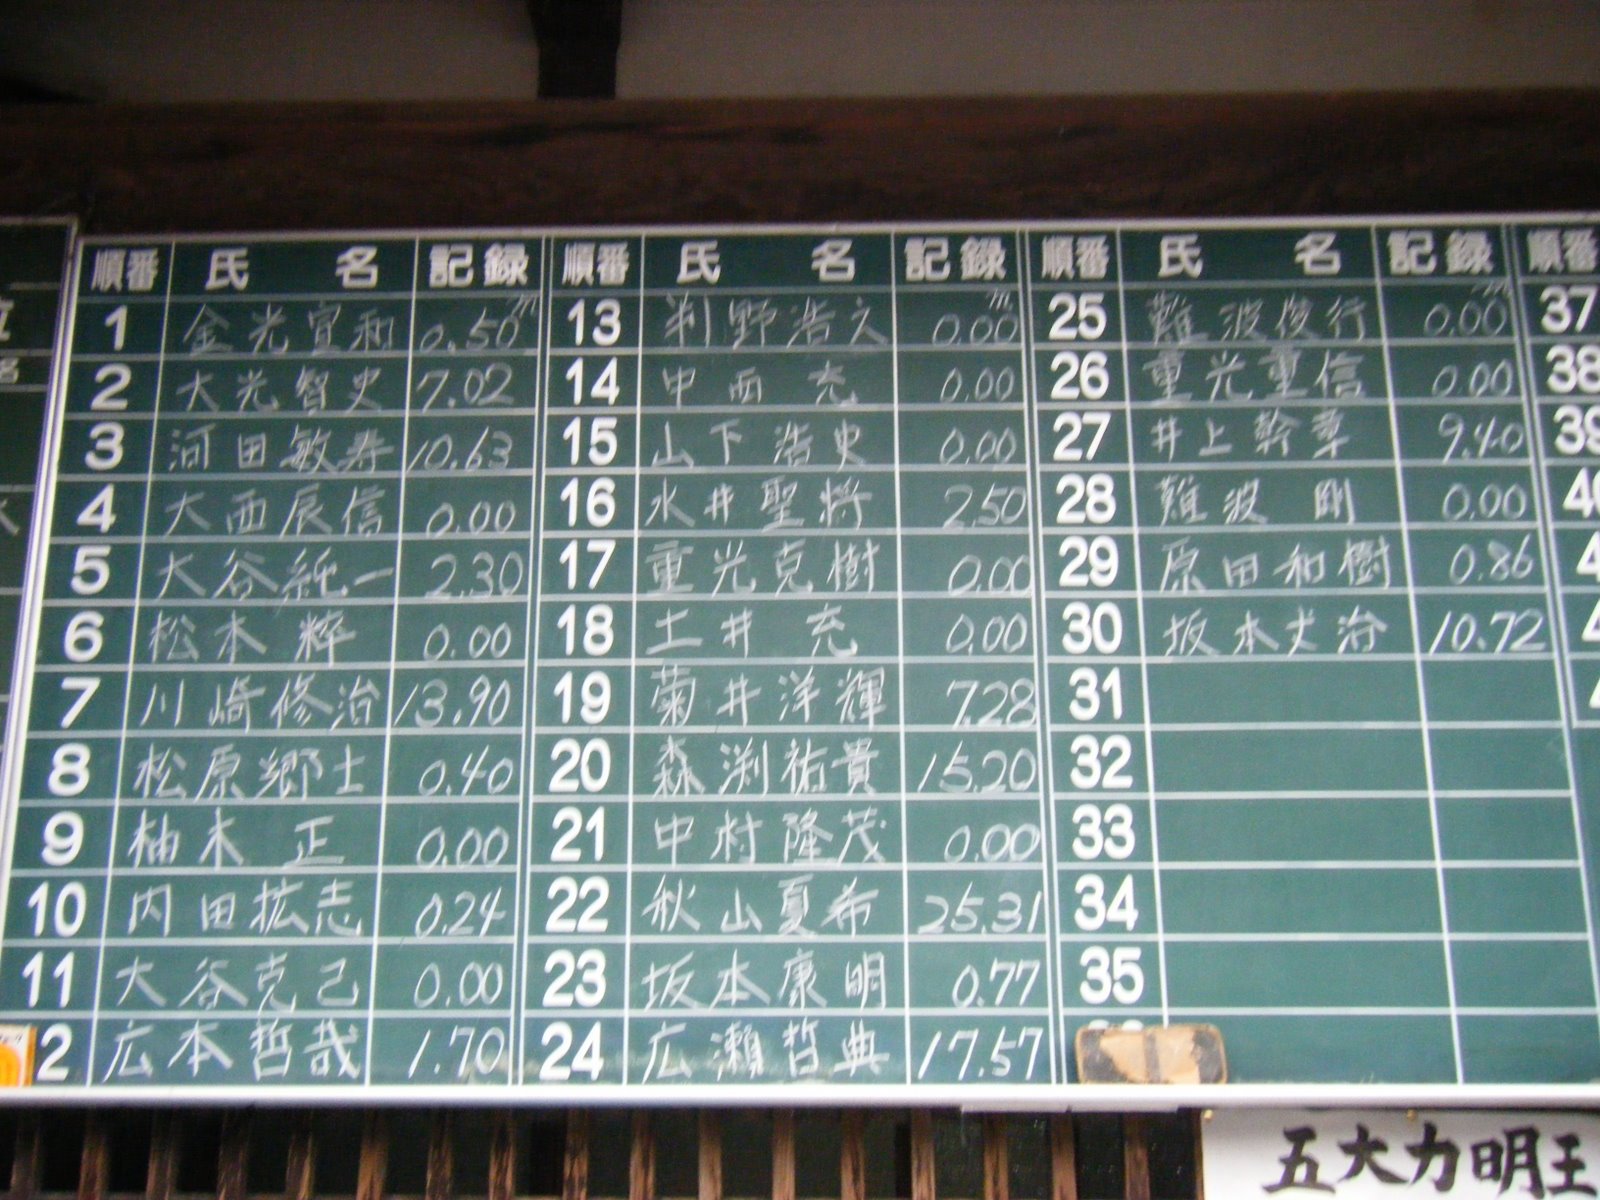 順番 氏 名 記録 順番 氏 名 記録 順番 氏 名 記録 順番
1 金光宣和 0.50m 13 判野浩之 0.00m 25 難波俊行 0.00m 37
2 大光智史 7.02 14 中西 充 0.00 26 重光重信 0.00 38
3 河田敏寿 10.63 15 山下浩史 0.00 27 井上幹章 9.40 39
4 大西辰信 0.00 16 水井聖将 2.50 28 難波 剛 0.00
5 大谷純一 2.30 17 重光克樹 0.00 29 原田和樹 0.86
6 松本 粋 0.00 18 土井 充 0.00 30 坂本丈治 10.72
7 川崎修治 13.90 19 菊井洋輝 7.28 31
8 松原郷士 0.40 20 森渕祐貴 15.20 32
9 柚木 正 0.00 21 中村隆茂 0.00 33
10 内田拡志 0.24 22 秋山夏希 25.31 34
11 大谷克己 0.00 23 坂本康明 0.77 35
2 広本哲哉 1.70 24 広瀬哲典 17.57
五大力明王